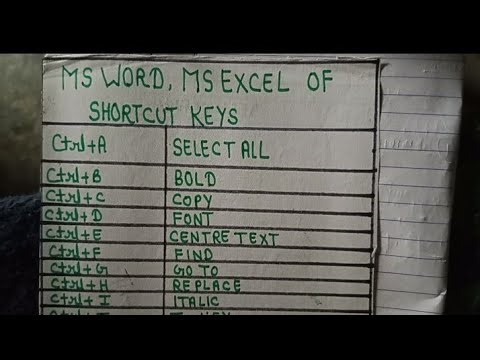 MS WORD, MS EXCEL OF
SHORTCUT KEYS
Ctrl+A SELECT ALL
Ctrl+B BOLD
Ctrl+C COPY
Ctrl+D FONT
Ctrl+E CENTRE TEXT
Ctrl+F FIND
Ctrl+G GO TO
Ctrl+H REPLACE
Ctrl+I ITALIC